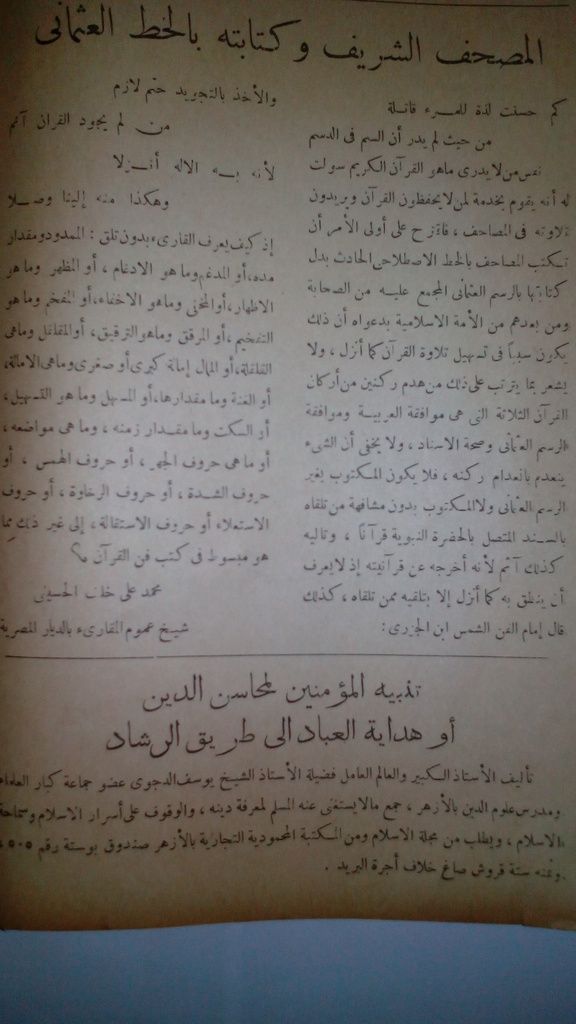 المصحف الشريف وكتابته بالخط العثمانى
كم حسنت لذة للمرء قاتلة
من حيث لم يدر أن السم فى الدسم
نفس من لا يدرى ماهو القرآن الكريم سولت
له أنه يقوم بخدمة لمن لا يحفظون القرآن ويريدون
تلاوته فى المصاحف ، فاقترح على أولى الأمر أن
تكتب المصاحف بالخط الاصطلاحى الحادث بدل
كتابتها بالرسم العثمانى المجمع عليه من الصحابة
ومن بعدهم من الأمة الاسلامية بدعواه أن ذلك
يكون سبباً فى تسهيل تلاوة القرآن كما أنزل ، ولا
يشعر بما يترتب على ذلك من هدم ركنين من أركان
القرآن الثلاثة التى هى موافقة العربية وموافقة
الرسم العثمانى وصحة الاسناد ، ولا يخفى أن الشىء
ينعدم بانعدام ركنه ، فلا يكون المكتوب بغير
الرسم العثمانى ولا المكتوب بدون مشافهة من تلقاه
بالسند المتصل بالحضرة النبوية قرآناً ، وتاليه
كذلك آثم لأنه أخرجه عن قرآنيته إذ لا يعرف
أن ينطق به كما أنزل إلا بتلقيه ممن تلقاه ، كذلك
قال إمام الفن الشمس ابن الجزرى :
والأخذ بالتجويد حتم لازم
من لم يجود القرآن آثم
لأنه به الاله أنزلا
وهكذا منه إلينا وصلا
إذ كيف يعرف القارىء بدون تلق : الممدود ومقدار
مده ، أو المدغم وما هو الادغام ، أو المظهر وما هو
الاظهار ، أو المخفى وماهو الاخفاء ، أو المفخم وما هو
التفخيم ، أو المرقق وماهو الترقيق ، أو المقلقل وماهى
القلقلة ، أو الممال إمالة كبرى أو صغرى وماهى الامالة ،
أو الغنة وما مقدارها ، أو المسهل وما هو التسهيل ،
أو السكت وما مقدار زمنه ، وما هى مواضعه ،
أو ما هى حروف الجهر ، أو حروف الهمس ، أو
حروف الشدة ، أو حروف الرخاوة ، أو حروف
الاستعلاء أو حروف الاستفالة ، إلى غير ذلك مما
هو مبسوط فى كتب فن القرآن
محمد على خلف الحسينى
شيخ عموم المقارىء بالديار المصرية
تنبيه المؤمنين لمحاسن الدين
أو هداية العباد الى طريق الرشاد
تأليف الأستاذ الكبير والعالم العامل فضيلة الأستاذ الشيخ يوسف الدجوى عضو جماعة كبار العلماء
ومدرس علوم الدين بالأزهر ، جمع مالا يستغنى عنه المسلم لمعرفة دينه ، والوقوف على أسرار الاسلام وسماحة
الاسلام ، ويطلب من مجلة الاسلام ومن المكتبة المحمودية التجارية بالأزهر صندوق بوستة رقم ٥٠٥ ،
وثمنه ستة قروش صاغ خلاف أجرة البريد .